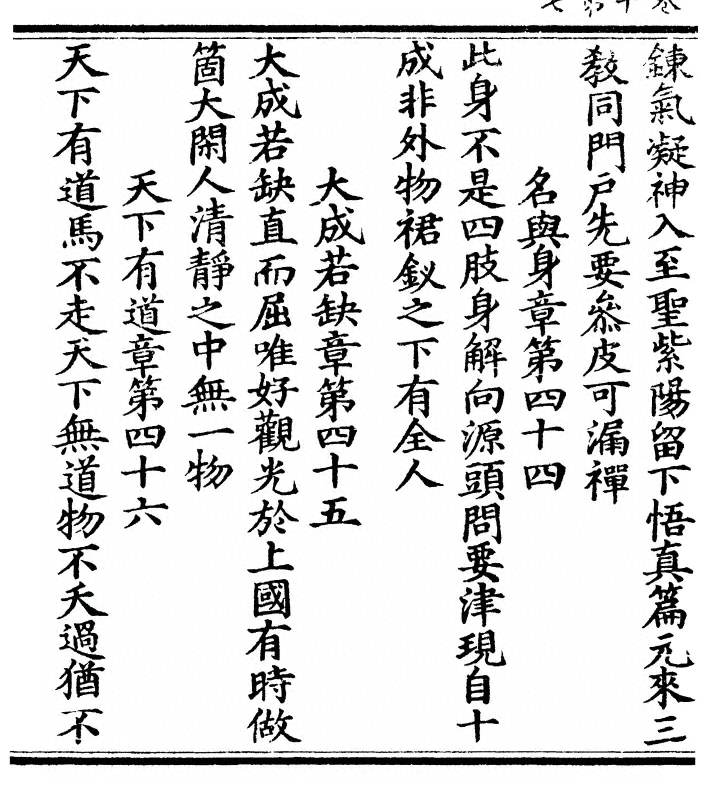 鍊氣凝神入至聖紫陽留下悟真篇元來三
敎同門戶先要叅皮可漏禪
名與身章第四十四
此身不是四肢身解向源頭問要津現自十
成非外物裙釵之下有全人
大成若缺章第四十五
大成若缺直而屈唯好觀光於上國有時做
箇大閑人清靜之中無一物
天下有道章第四十六
天下有道馬不走天下無道物不夭過猶不